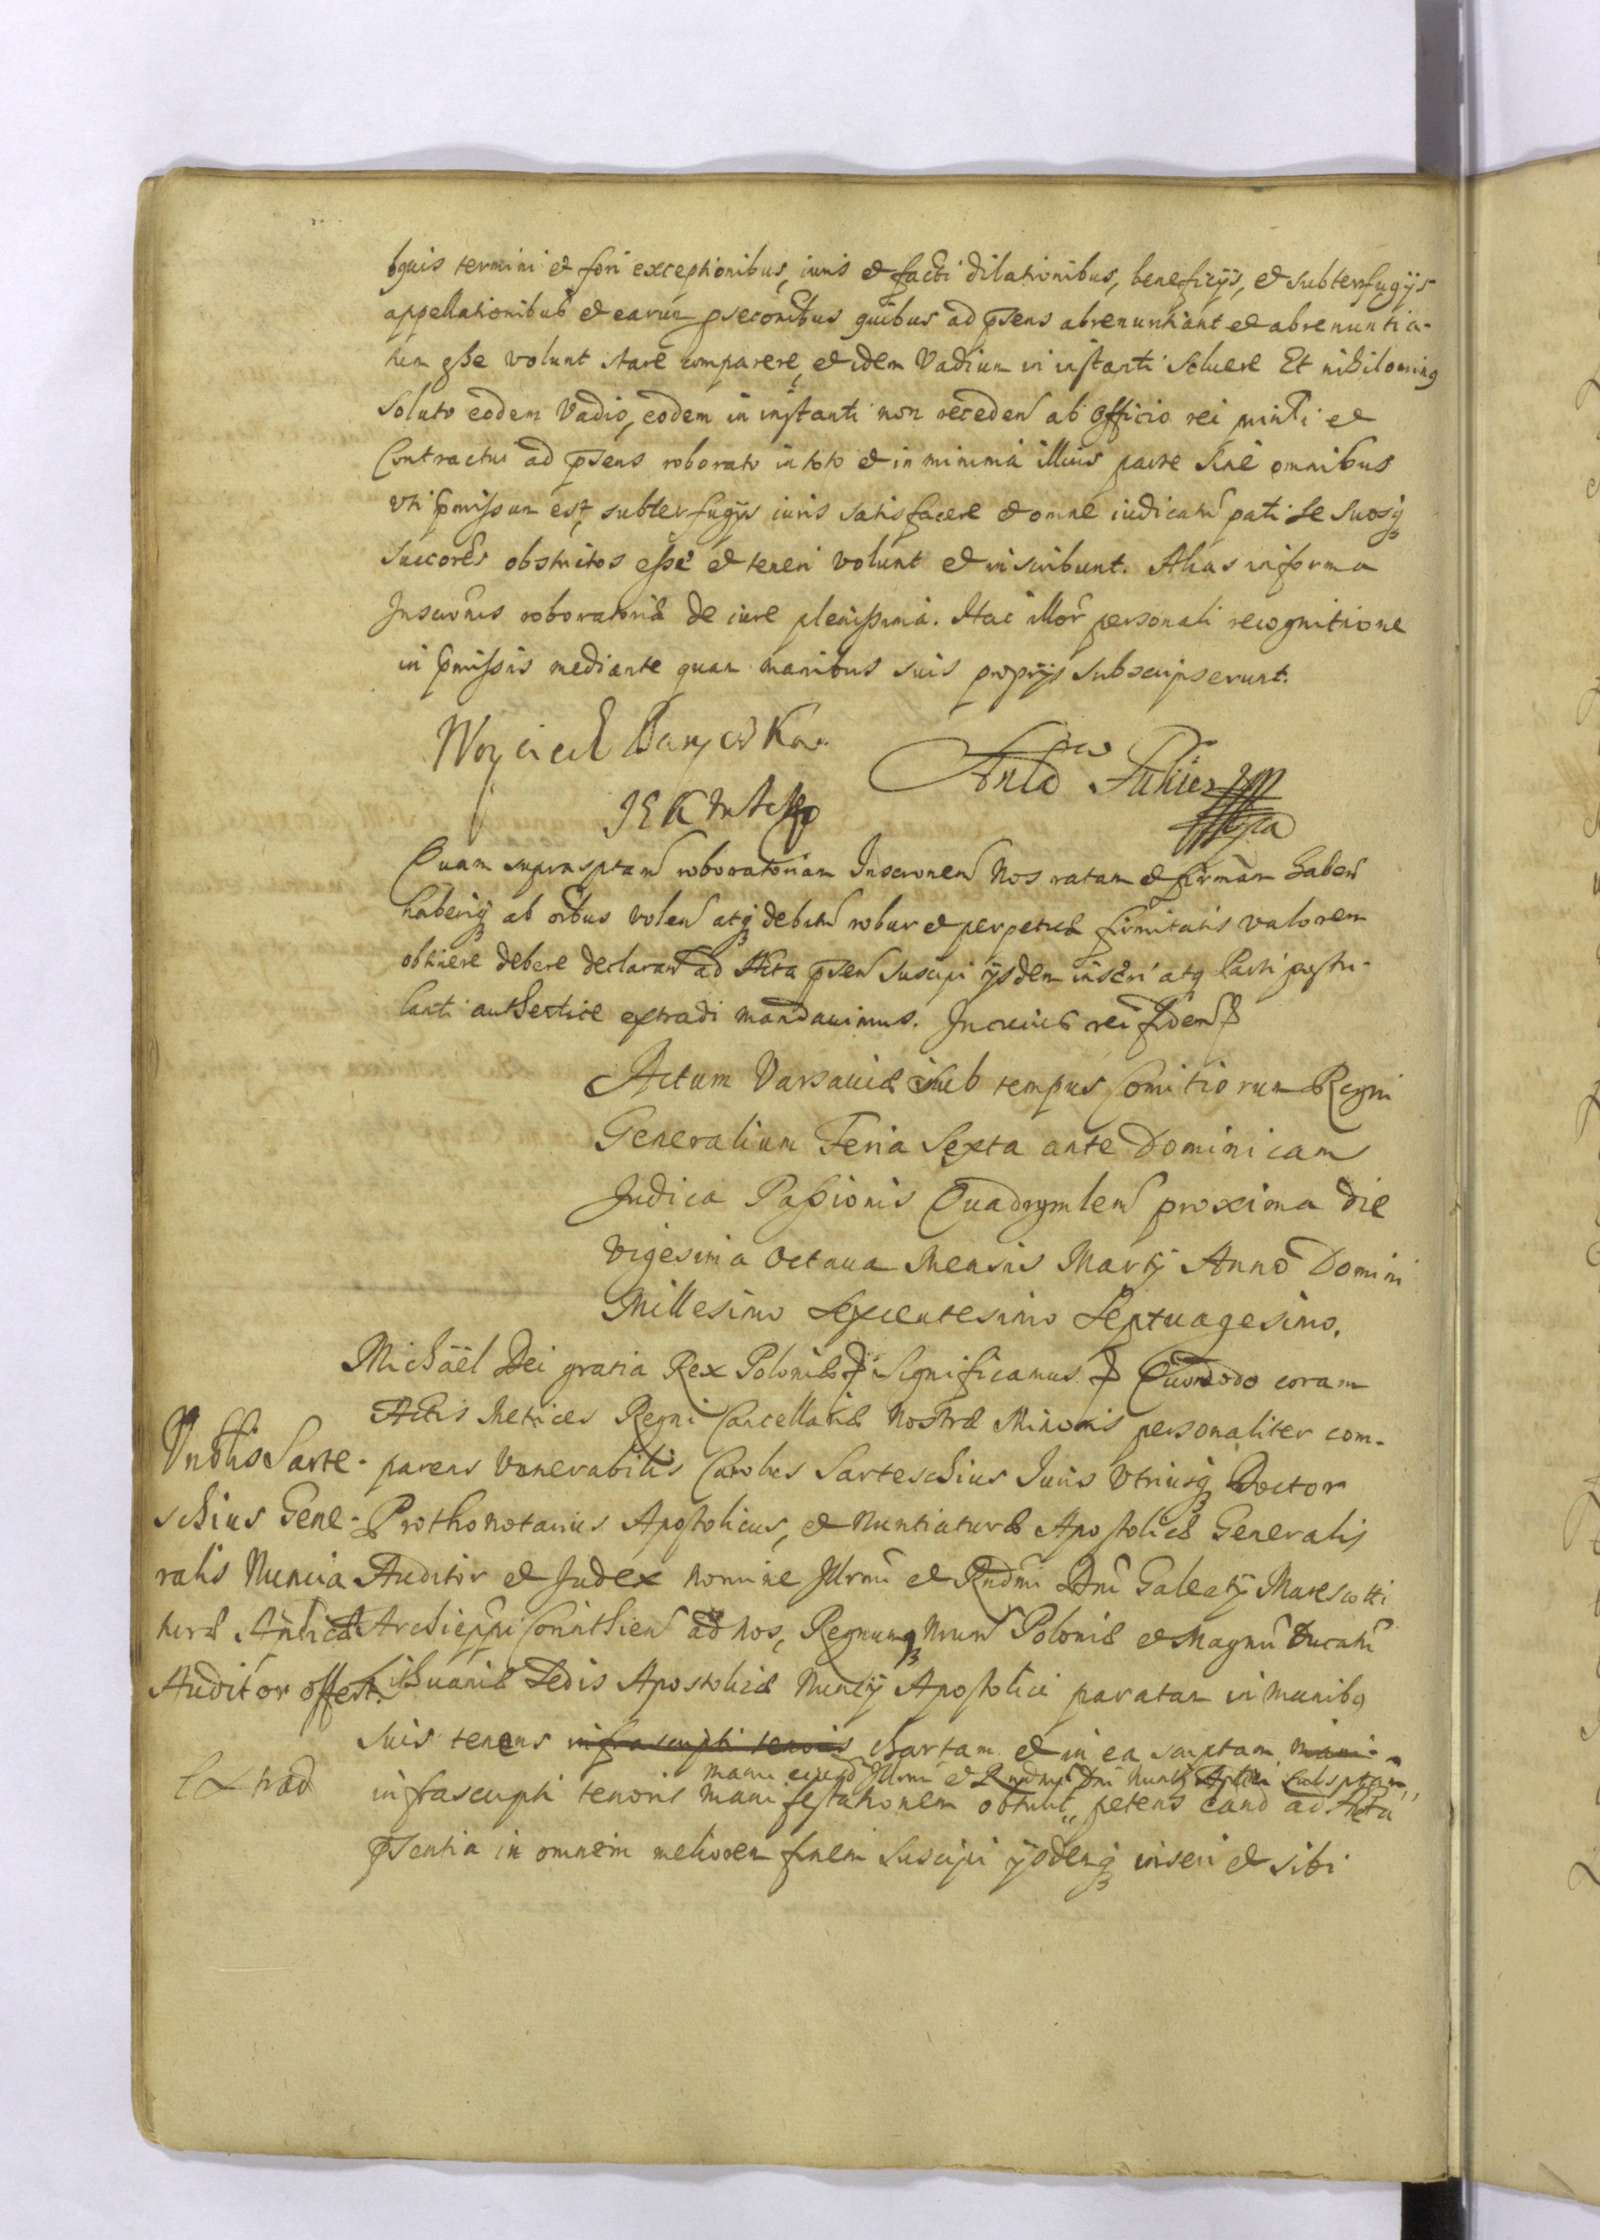 bquis termini et fori exceptionibus, iuris et facti dilationibus, beneficijs, et subterfugijs
appellationibus et earun psecōnibus quibus ad pñsens abrenuntiant et abrenuntia-
tum esse volunt stare comparere, et idem Vadium in instanti soluere Et nihilominq
Soluto eodem Vadio, eodem in instanti non receden̄ ab officio rei et
Contractui ad pñsens roborato in toto et in minima illius parte sine omnibus
Vti pmissum est, subterfugijs iuris satisfacere et omne iudicatū pati se suosq
succorēs obstrictos esse et teneri volunt et inscribunt. Alias in forma
Inscrōnis roboratoriæ de iure plenissima. Hac illōr personali recognitione
in pmissis mediante quam manibus suis proprijs subscripserunt.
Woyciech
Quam suprasptam̄ roboratoriam Inscrōnem̄ Nos ratam et firmam haben̄
haberiq ab oībus volen̄ atq debitū robur et perpetuæ firmitatis valorem
obtinere debere declaran̄ ad Acta pñsen̄ suscipi ijsdem inseri atq Parti postu-
lanti authentice extradi mandauimus. In cuius rei fidem̄
Actum Varsauiæ sub tempus Comitiorum Regni
Generalium Feria Sexta ante Dominicam
Judica Passionis Quadrgmlem̄ proxima die
Vigesima octaua Mensis Martij Anno Domini
Millesimo Sexcentesimo Septuagesimo.
Michäel Dei gratia Rex Poloniæ Significamus Quomodo coram
Actis Metrices Regni Cancellariæ Nostræ Minoris personaliter com-
parens Venerabilis Carolus Sarteschius Iuris Vtriusq Doctor
Prothonotarius Apostolicus, et Nuntiaturæ Apostolicæ Generalis
Auditor et Judex nomine Illrmi et Rndmi Dnī Galeatij Marescotti
Archieppi Corinthien̄ ad nos, Regnumq Nrum̄ Poloniæ et Magnū Ducatū
Lithuaniæ Sedis Apostolicæ Nuncij Apostolici paratam in manibq
suis tenens infrascripti tenoris chartam et in ea scriptam mani-
manu eiusd Illrmi et Rndmi Dnī Nuntij Aplici subsptam,
infrascripti tenoris manifestationem obtulit, petens eand ad Acta
pñsentia in omnem meliorem finem suscipi ijsdemq inseri et sibi
Vnblis Sarte-
schius Gene-
ralis Nuncia
turæ Aplicæ
Auditor offert.
Extrad